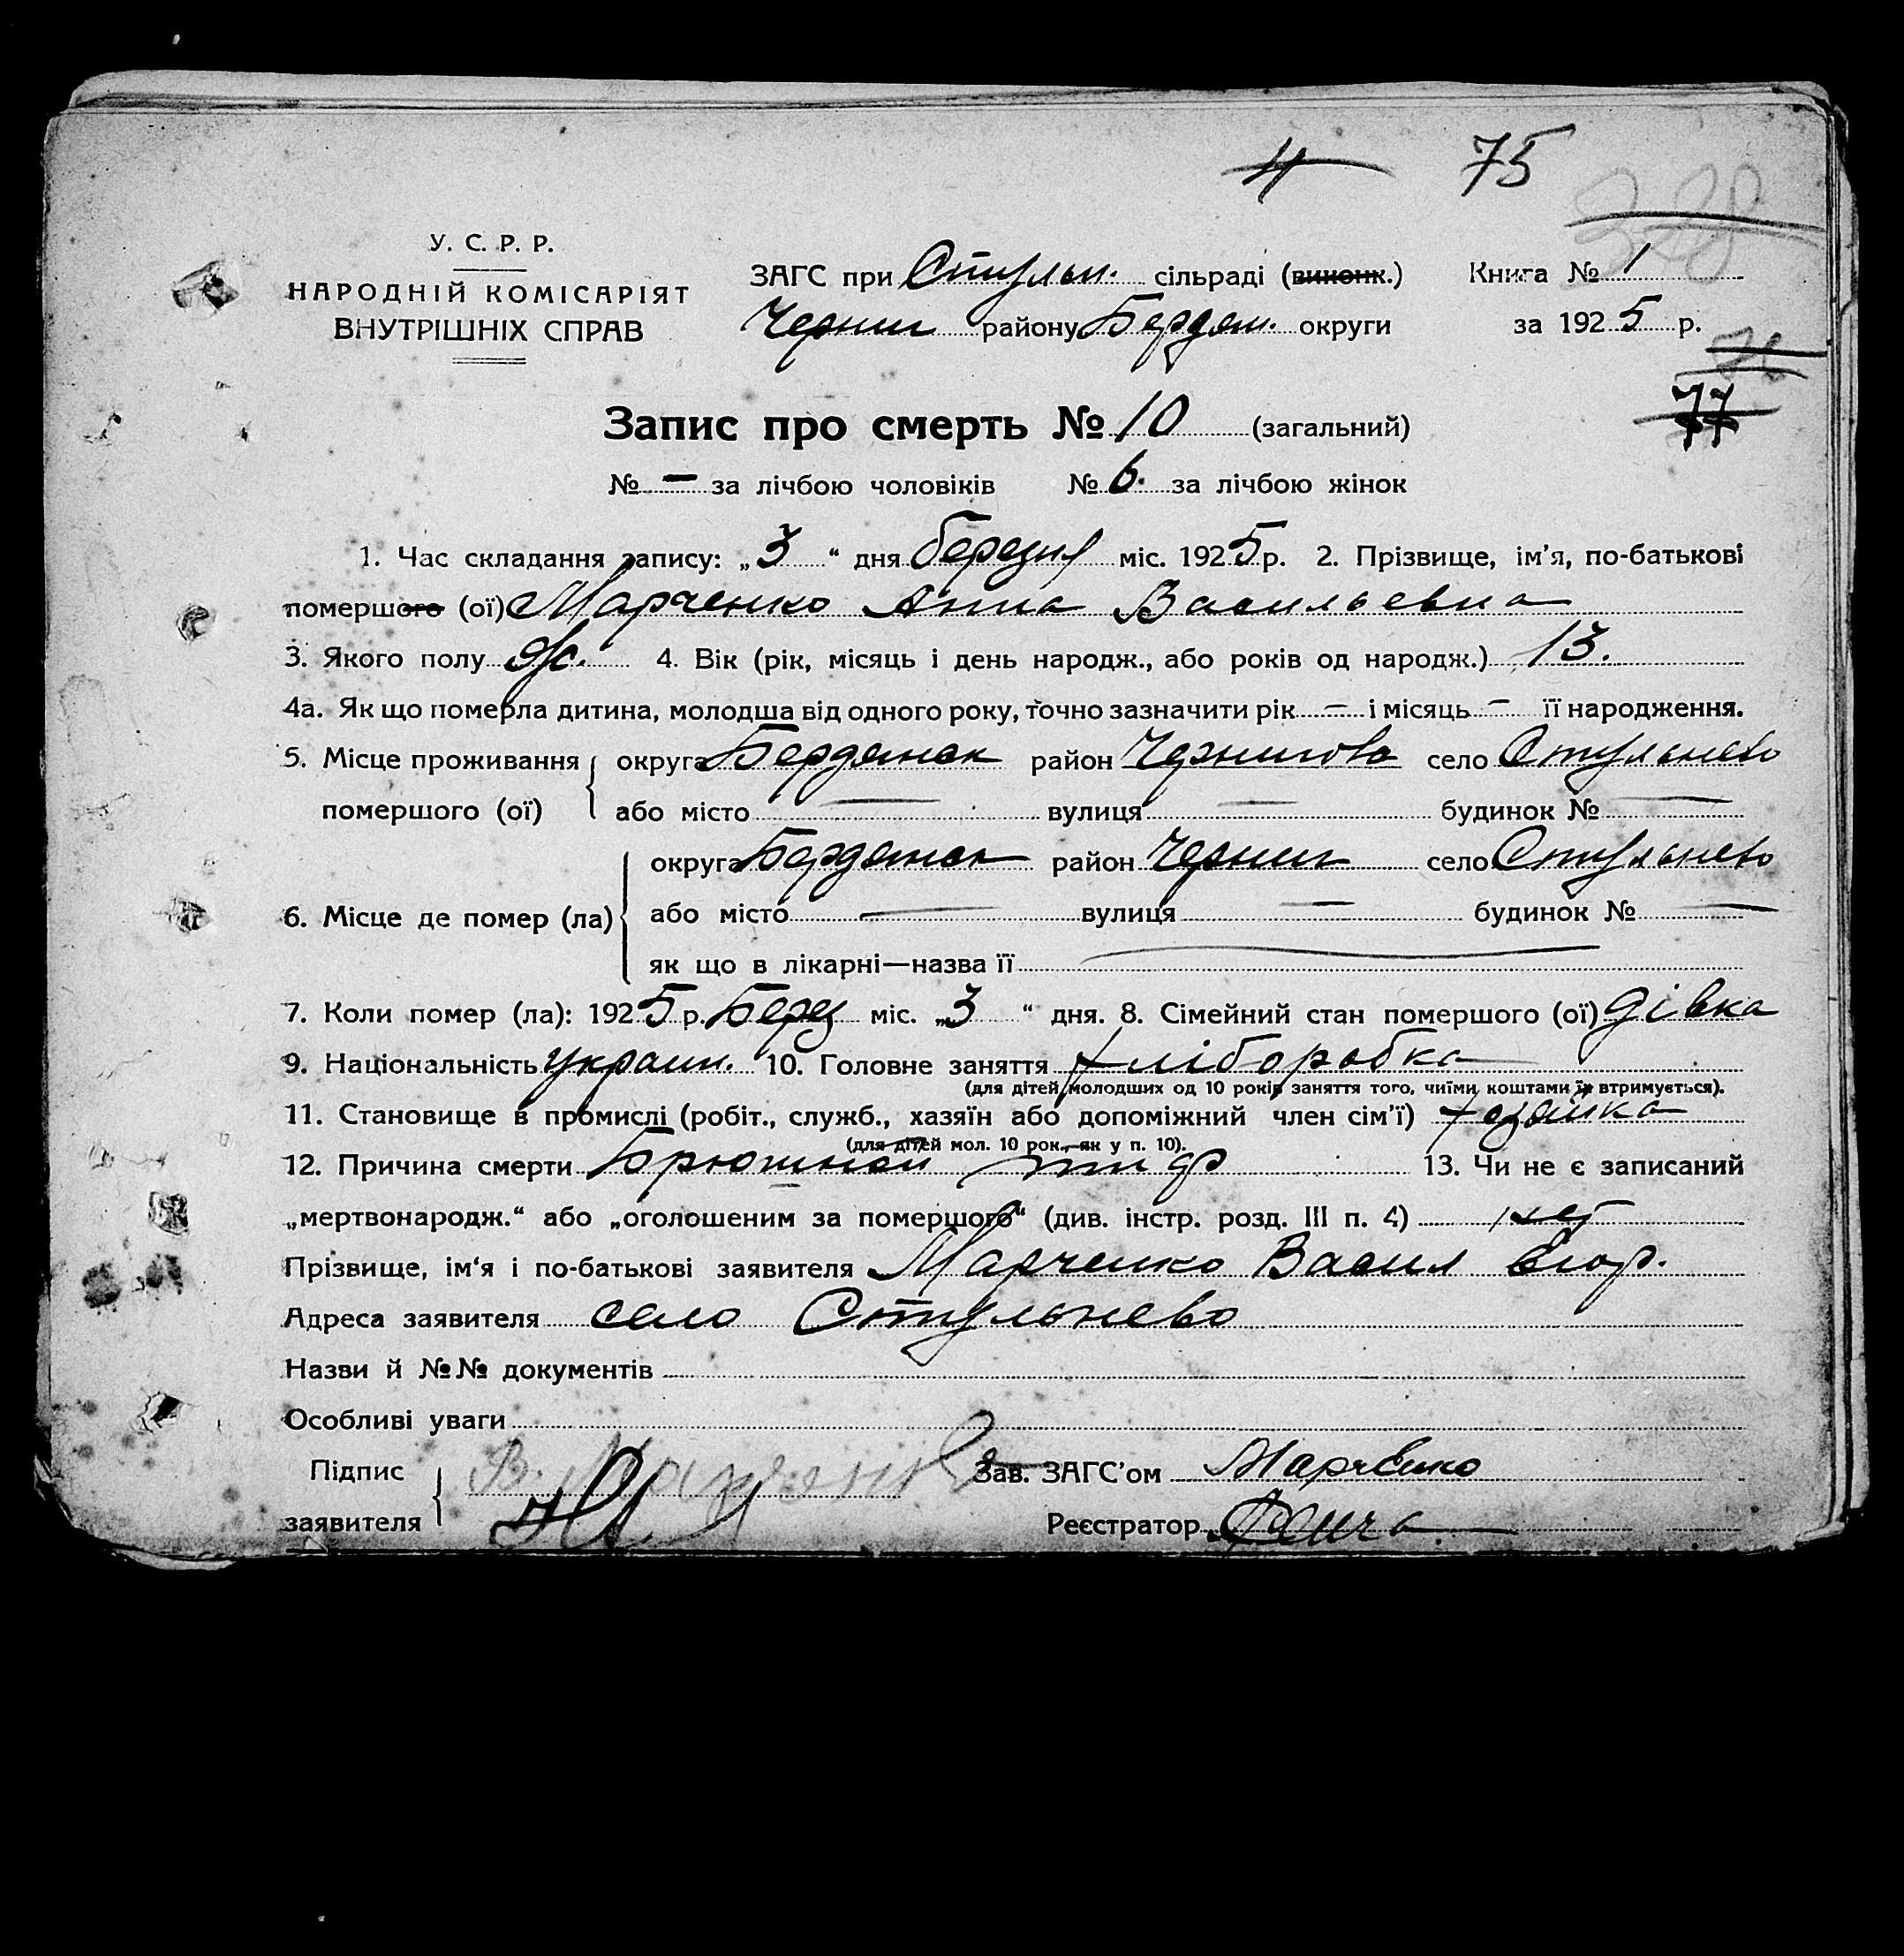 4 75
328
У. С. Р. Р.
НАРОДНІЙ КОМІСАРІЯТ
ВНУТРІШНІХ СПРАВ
ЗАГС при Стульн. сільраді (виконк.) Книга № 1
Черниг району Бердян. округи за 1925 р.
77
Запис про смерть № 10 (загальний)
№ — за лічбою чоловіків № 6. за лічбою жінок
1. Час складання запису: „3“ дня березня міс. 1925 р. 2. Прізвище, ім'я, по-батькові
помершого (ої) Марченко Анна Васильевна
3. Якого полу ж. 4. Вік (рік, місяць і день народж., або років од народж.) 13.
4а. Як що померла дитина, молодша від одного року, точно зазначити рік — і місяць — її народження.
5. Місце проживання округа Бердянск район Чернигово село Стульнево
помершого (ої) або місто — вулиця — будинок № —
округа Бердянск район Черниг село Стульнево
6. Місце де помер (ла) або місто — вулиця — будинок № —
як що в лікарні—назва її —
7. Коли помер (ла): 1925 р. Берез міс. „3“ дня. 8. Сімейний стан помершого (ої) дівка
9. Національність україн. 10. Головне заняття хліборобка
(для дітей молодших од 10 років заняття того, чиїми коштами їх втримується).
11. Становище в промислі (робіт., служб., хазяїн або допоміжний член сім'ї) хазяйка
(для дітей мол. 10 рок.,—як у п. 10).
12. Причина смерти Брюшной тиф 13. Чи не є записаний
„мертвонародж.“ або „оголошеним за помершого“ (див. інстр. розд. III п. 4) нет
Прізвище, ім'я і по-батькові заявителя Марченко Васил Егор.
Адреса заявителя село Стульнево
Назви й №№ документів
Особливі уваги
Підпис В. Марченко Зав. ЗАГС'ом Марченко
заявителя Реєстратор